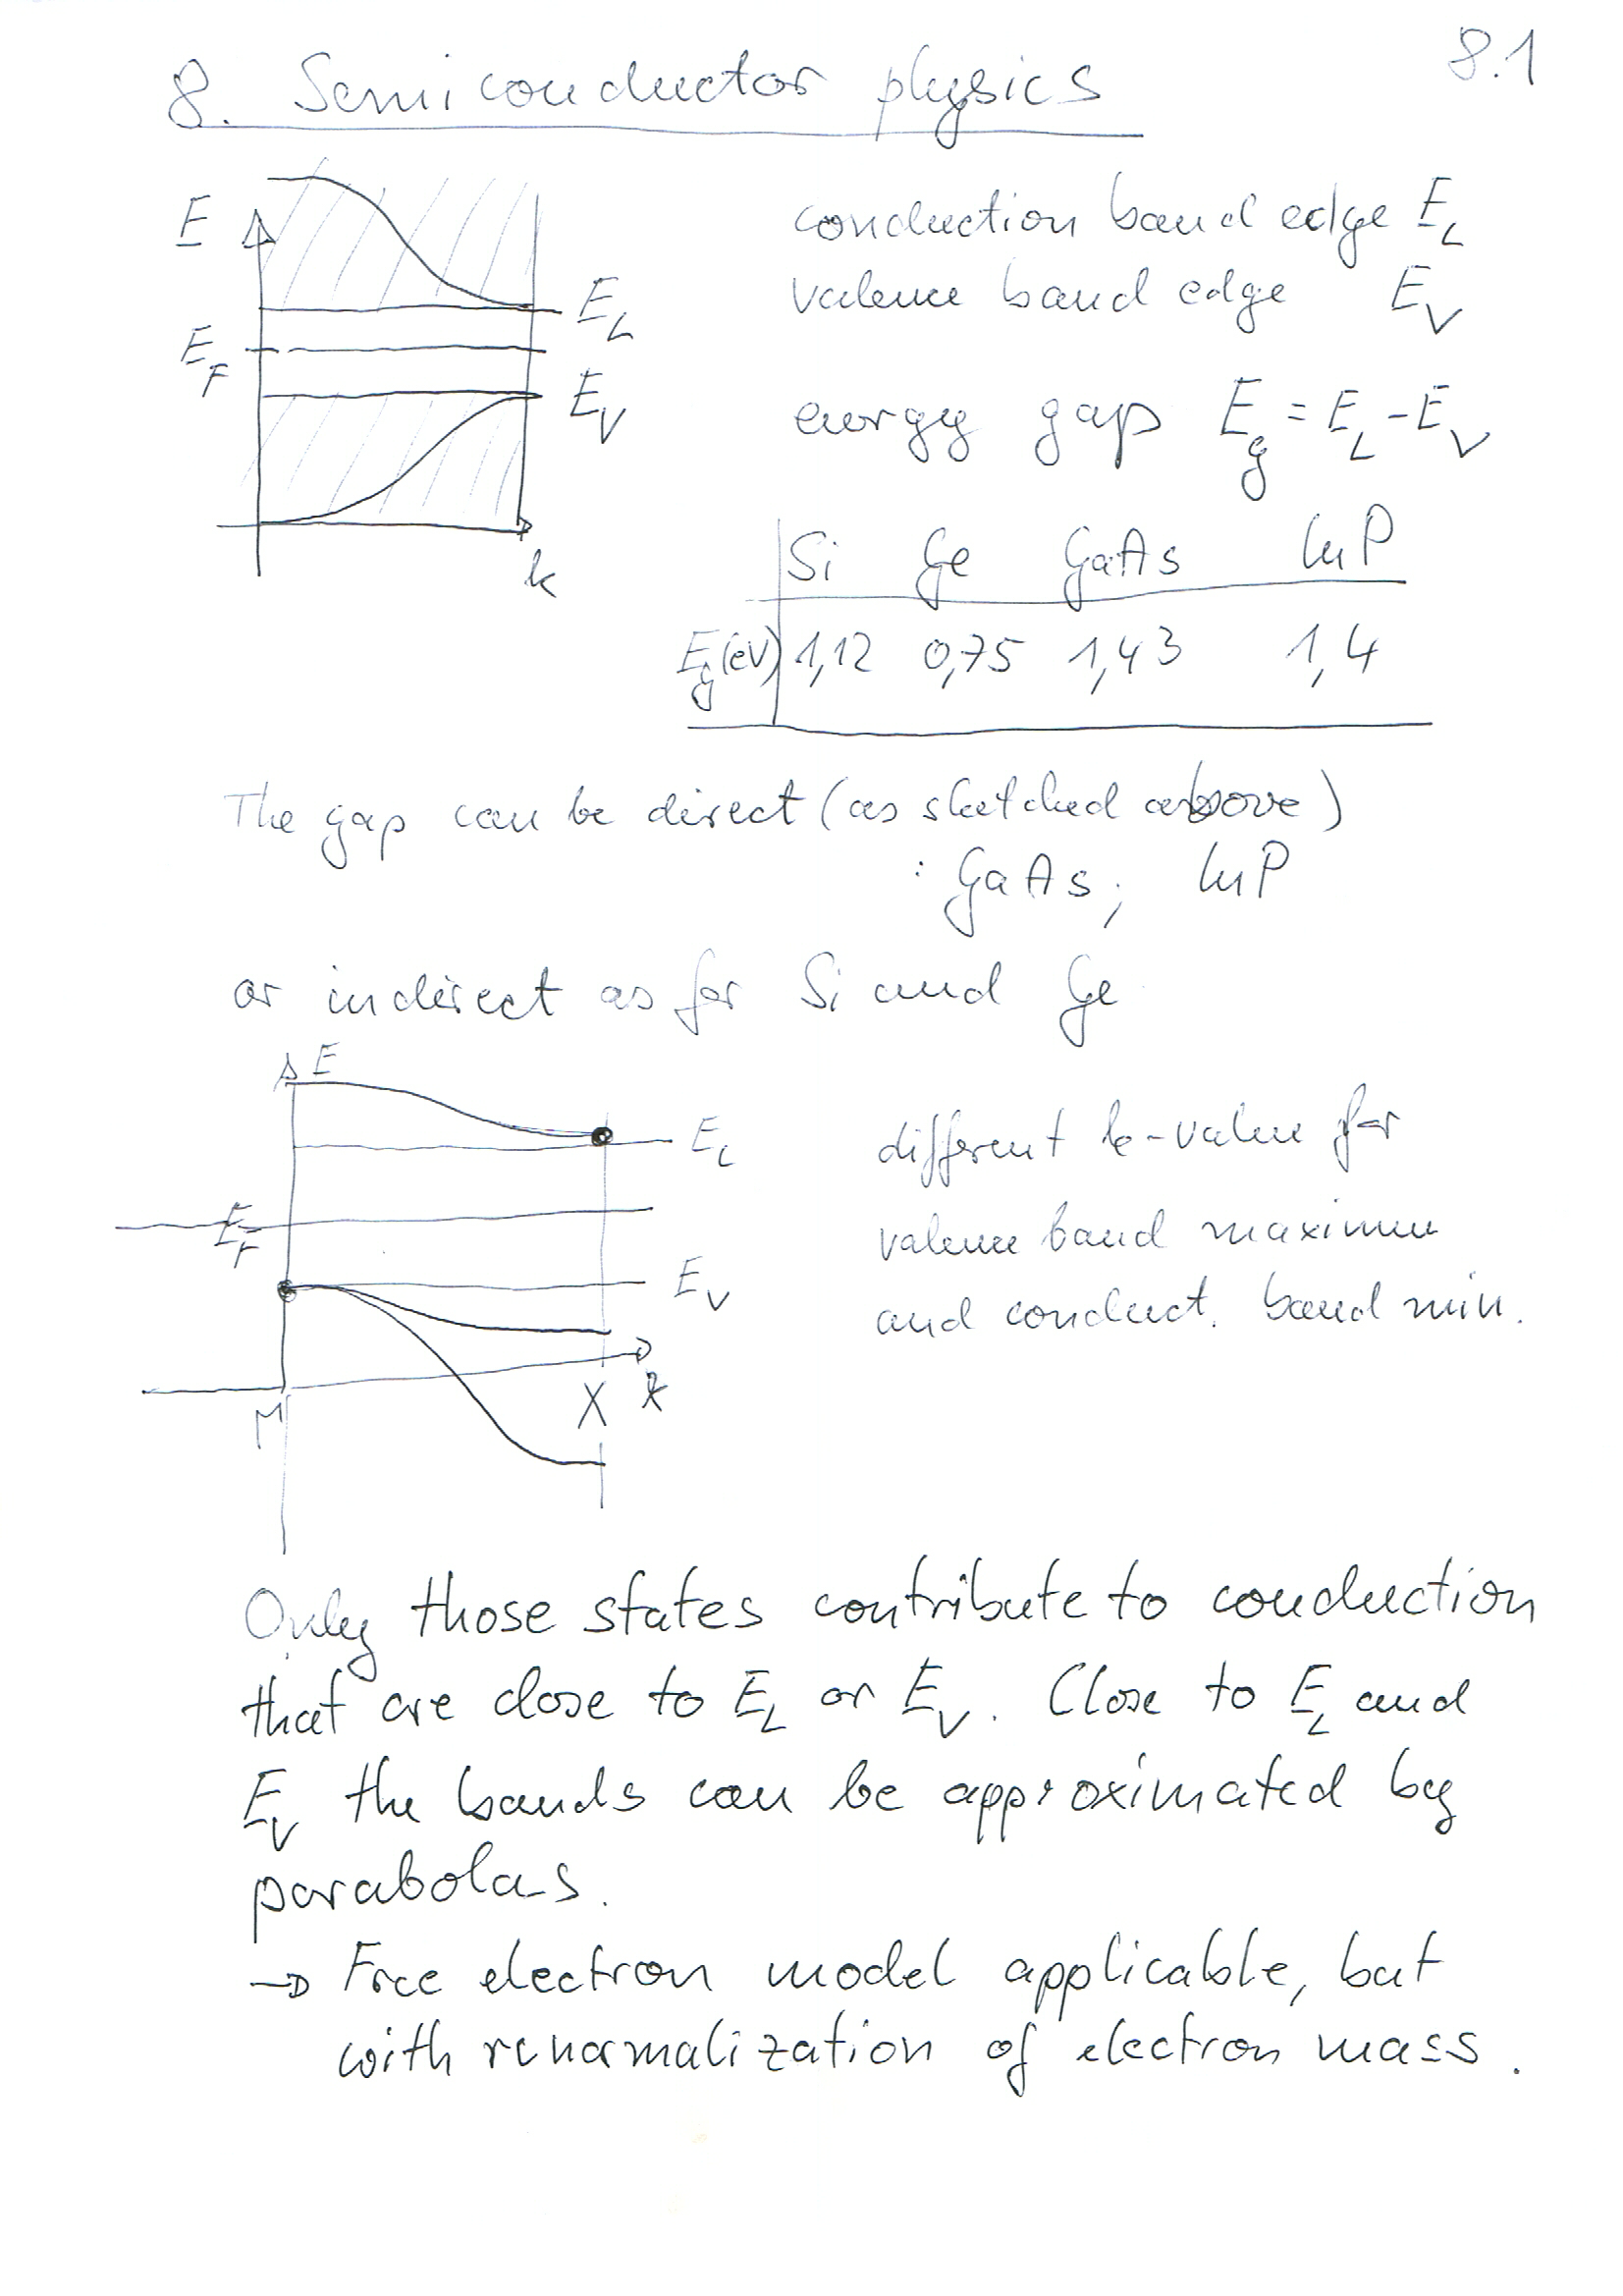 8.1
8. Semiconductor physics
E
E_L
E_F
E_V
k
conduction band edge E_L
valence band edge E_V
energy gap E_g = E_L - E_V
Si Ge GaAs InP
E_g (eV) 1,12 0,75 1,43 1,4
The gap can be direct (as sketched above)
: GaAs; InP
or indirect as for Si and Ge
E
E_L
E_F
E_V
M X k
different k-value for
valence band maximum
and conduct. band min.
Only those states contribute to conduction
that are close to E_L or E_V. Close to E_L and
E_V the bands can be approximated by
parabolas.
→ Free electron model applicable, but
with renormalization of electron mass.